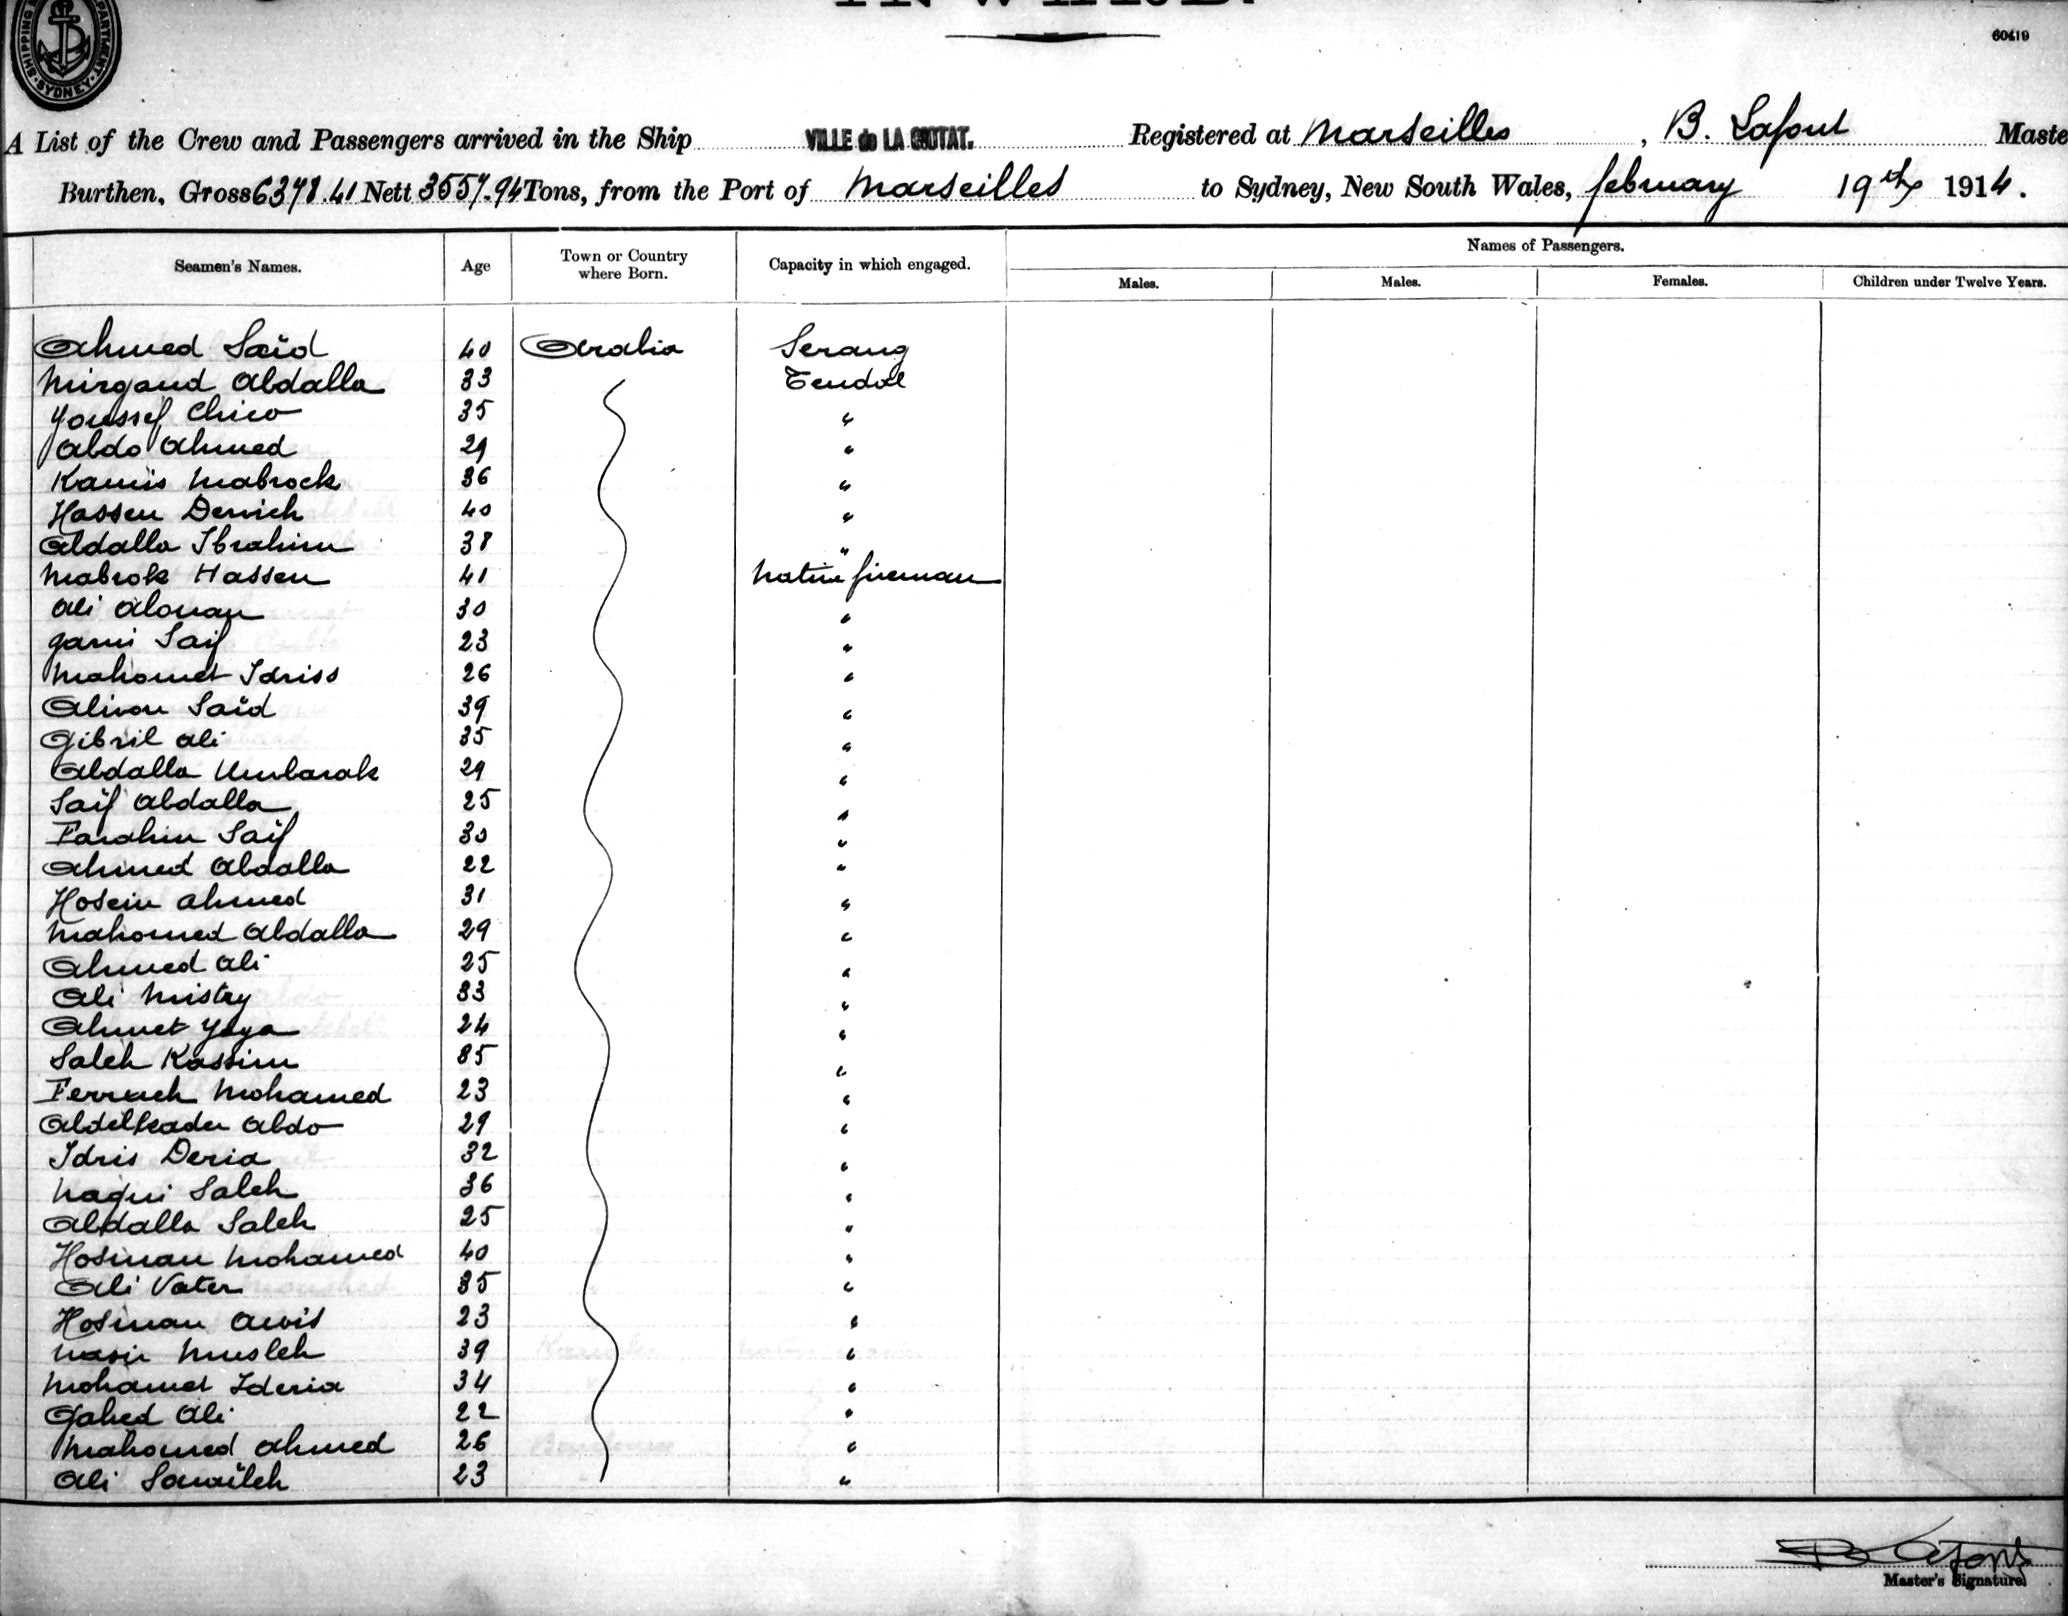 INWARD.
SHIPPING DEPARTMENT. SYDNEY.
60419
A List of the Crew and Passengers arrived in the Ship VILLE de LA CIOTAT. Registered at Marseilles, B. Lafont Maste
Burthen, Gross 6378.41 Nett 3557.94 Tons, from the Port of Marseilles to Sydney, New South Wales, february 19th 1914.
Seamen's Names. Age Town or Country where Born. Capacity in which engaged. Names of Passengers.
Males. Males. Females. Children under Twelve Years.
Ahmed Saïd 40 Arabia Serang
Mirgand Abdalla 33 Tendal
Youssef Chico 35 "
Abdo Ahmed 29 "
Kamis Mabrock 36 "
Hassen Dervich 40 "
Abdalla Ibrahim 38 "
Mabrok Hassen 41 Native fireman
Ali Alonan 30 "
Gami Saif 23 "
Mahomet Idriss 26 "
Alivou Saïd 39 "
Gibril Ali 35 "
Abdalla Umbarak 29 "
Saïf Abdalla 25 "
Farahim Saïf 30 "
Ahmed Abdalla 22 "
Hosein Ahmed 31 "
Mahomed Abdalla 29 "
Ahmed Ali 25 "
Ali Mistry 33 "
Ahmet Yaya 24 "
Saleh Kassim 35 "
Ferrach Mohamed 23 "
Abdelkader Abdo 29 "
Idris Deria 32 "
Nagui Saleh 36 "
Abdalla Saleh 25 "
Hosman Mohamed 40 "
Ali Vater 35 "
Hosman Awis 23 "
Nasir Musleh 39 "
Mohamet Ideria 34 "
Gahed Ali 22 "
Mahomed Ahmed 26 "
Ali Sowaïleh 23 "
B Lafont
Master's Signature